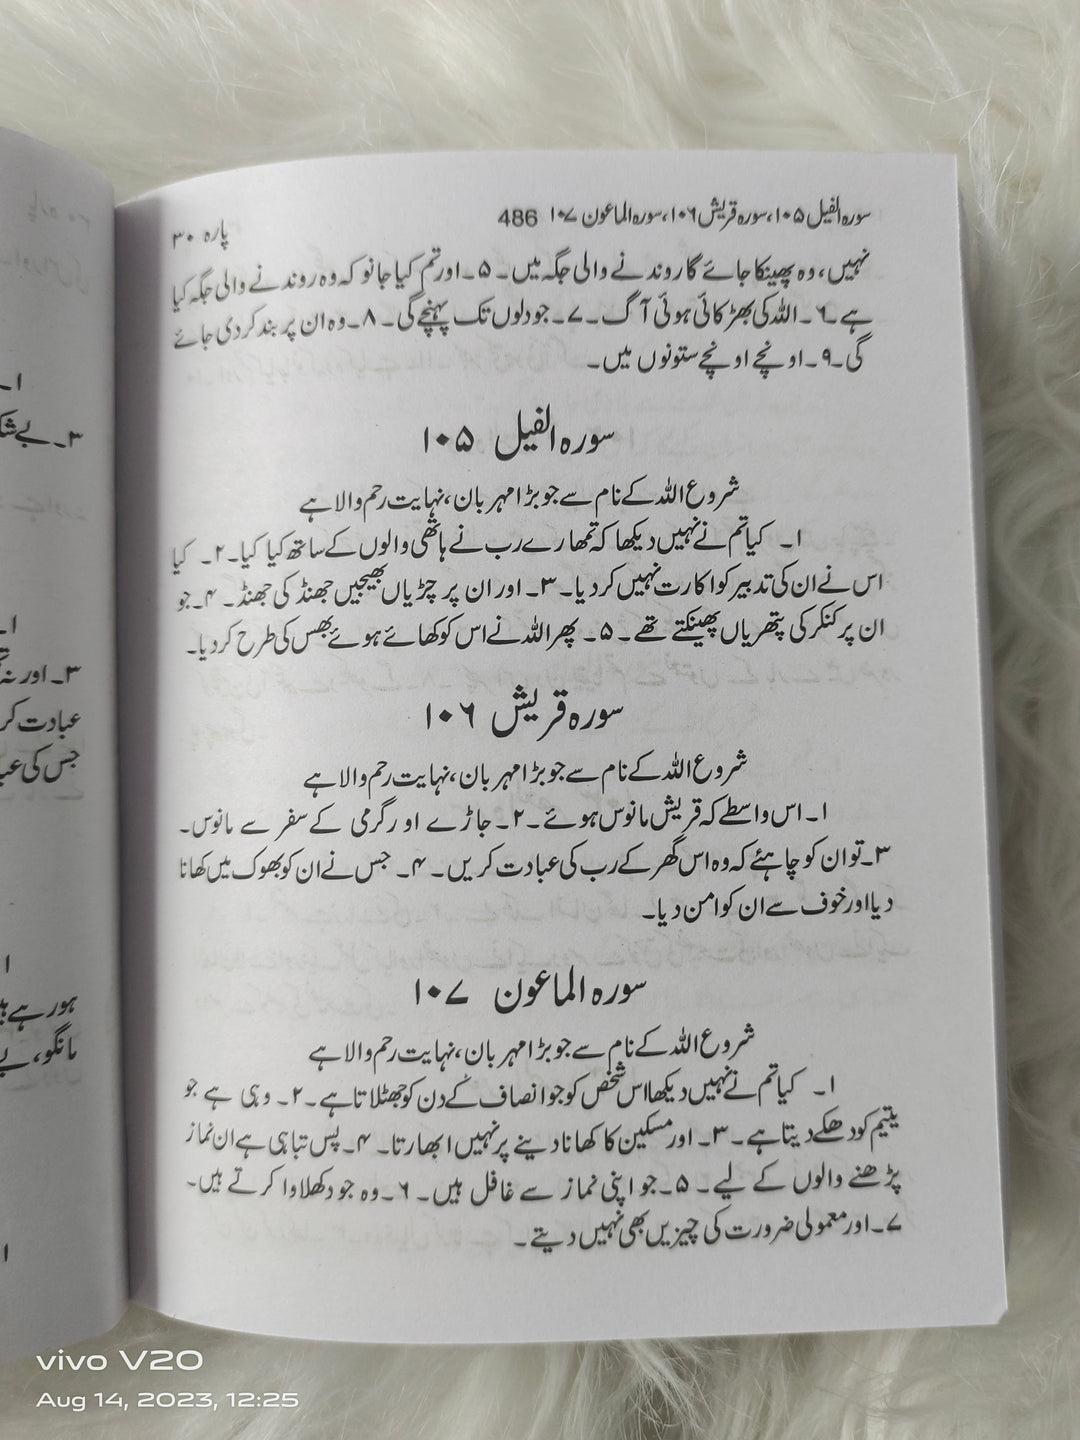 سورہ الفیل ۱۰۵، سورہ قریش ۱۰۶، سورہ الماعون ۱۰۷ 486 پارہ ۳۰
نہیں، وہ پھینکا جائے گا روندنے والی جگہ میں۔ ۵۔ اور تم کیا جانو کہ وہ روندنے والی جگہ کیا
ہے۔ ۶۔ اللہ کی بھڑکائی ہوئی آگ۔ ۷۔ جو دلوں تک پہنچے گی۔ ۸۔ وہ ان پر بند کر دی جائے
گی۔ ۹۔ اونچے اونچے ستونوں میں۔
سورہ الفیل ۱۰۵
شروع اللہ کے نام سے جو بڑا مہربان، نہایت رحم والا ہے
۱۔ کیا تم نے نہیں دیکھا کہ تمہارے رب نے ہاتھی والوں کے ساتھ کیا کیا۔ ۲۔ کیا
اس نے ان کی تدبیر کو اکارت نہیں کر دیا۔ ۳۔ اور ان پر چڑیاں بھیجیں جھنڈ کی جھنڈ۔ ۴۔ جو
ان پر کنکر کی پتھریاں پھینکتے تھے۔ ۵۔ پھر اللہ نے اس کو کھائے ہوئے بھس کی طرح کر دیا۔
سورہ قریش ۱۰۶
شروع اللہ کے نام سے جو بڑا مہربان، نہایت رحم والا ہے
۱۔ اس واسطے کہ قریش مانوس ہوئے۔ ۲۔ جاڑے اور گرمی کے سفر سے مانوس۔
۳۔ تو ان کو چاہئے کہ وہ اس گھر کے رب کی عبادت کریں۔ ۴۔ جس نے ان کو بھوک میں کھانا
دیا اور خوف سے ان کو امن دیا۔
سورہ الماعون ۱۰۷
شروع اللہ کے نام سے جو بڑا مہربان، نہایت رحم والا ہے
۱۔ کیا تم نے نہیں دیکھا اس شخص کو جو انصاف کے دن کو جھٹلاتا ہے۔ ۲۔ وہی ہے جو
یتیم کو دھکے دیتا ہے۔ ۳۔ اور مسکین کا کھانا دینے پر نہیں ابھارتا۔ ۴۔ پس تباہی ہے ان نماز
پڑھنے والوں کے لیے۔ ۵۔ جو اپنی نماز سے غافل ہیں۔ ۶۔ وہ جو دکھلاوا کرتے ہیں۔
۷۔ اور معمولی ضرورت کی چیزیں بھی نہیں دیتے۔
۱۔
۳۔ بے شک
۱۔
۳۔ اور نہ
عبادت کر
جس کی
۱
ہو رہے
مانگو،
۱
vivo V20
Aug 14, 2023, 12:25